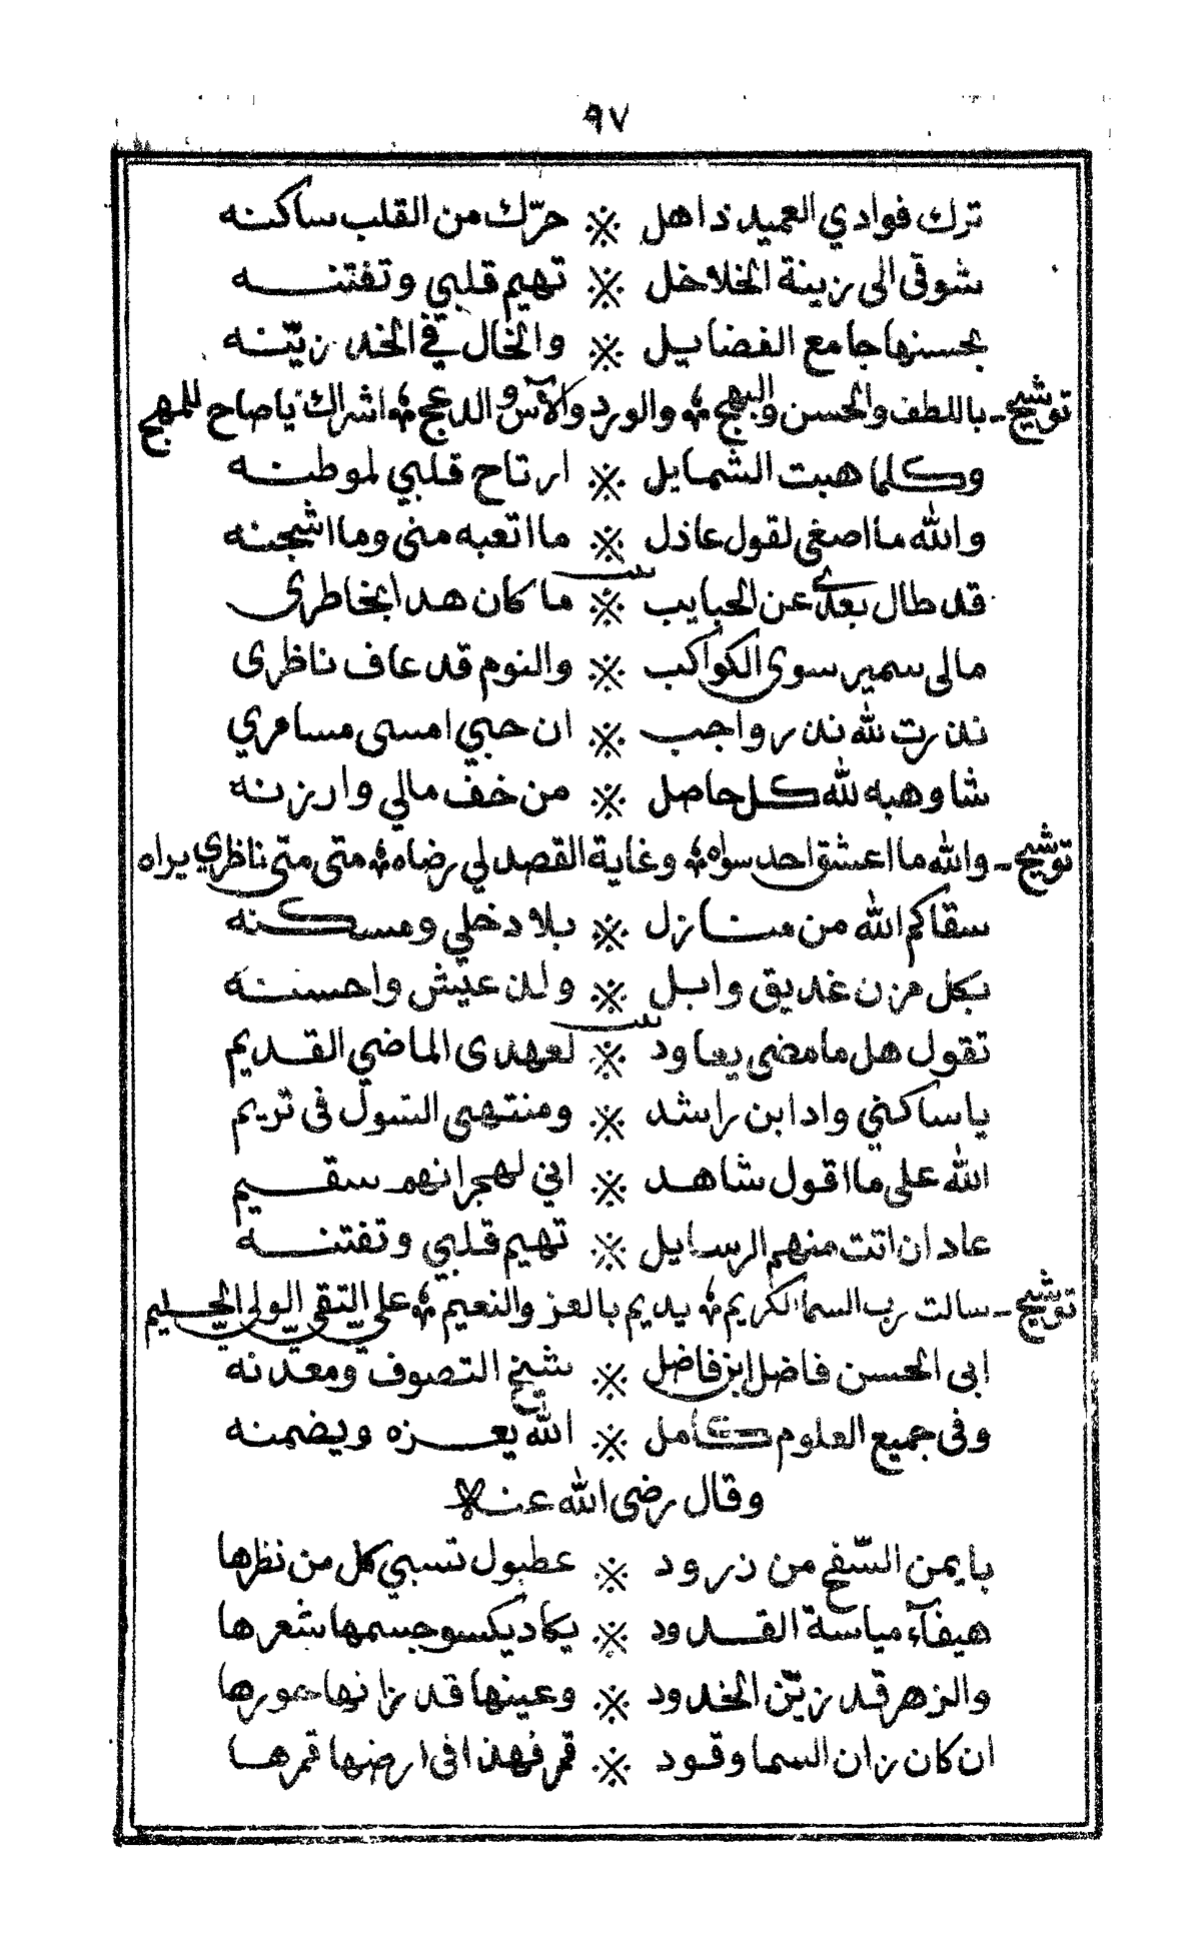 ٩٧
ترك فوادي العميد ذاهل ※ حرّك من القلب ساكنه
شوقى الى زينة الخلاخل ※ تهيم قلبي وتفتنه
بحسنها جامع الفضايل ※ والخال في الخد زيّنه
توشيح ـ باللطف والحسن والبهج ؛ والورد والآس والدعج ؛ اشراك ياصاح للمهج
وكلما هبت الشمايل ※ ارتاح قلبي لموطنه
والله ما اصغى لقول عاذل ※ ما اتعبه منى وما اشجنه
قد طال بعدي عن الحبايب ※ ما كان هدا بخاطرى
مالى سمير سوى الكواكب ※ والنوم قد عاف ناظرى
نذرت لله نذر واجب ※ ان حبي امسى مسامري
شاوهبه لله كل حاصل ※ من خف مالي وارزنه
توشيح ـ والله ما اعشق احد سواه ؛ وغاية القصد لي رضاه ؛ متى متى ناظري يراه
سقاكم الله من منازل ※ بلاد خلي ومسكنه
بكل مزن غديق وابل ※ ولذ عيش واحسنه
تقول هل ما مضى يعاود ※ لعهدى الماضي القديم
ياساكني وادا بن راشد ※ ومنتهى السول فى تريم
الله على ما اقول شاهد ※ اني لهجرانهم سقيم
عاد ان اتت منهم الرسايل ※ تهيم قلبي وتفتنه
توشيح ـ سالت رب السما الكريم ؛ يديم بالعز والنعيم ؛ على التقي الولي الحليم
ابى الحسن فاضل ابن فاضل ※ شيخ التصوف ومعدنه
وفى جميع العلوم كامل ※ الله يعزه ويضمنه
وقال رضى الله عنه
بايمن السّفح من زرود ※ عطبول تسبي كل من نظرها
هيفآء مياسة القدود ※ يكاد يكسو جسمها شعرها
والزهر قد زيّن الخدود ※ وعينها قد زانها حورها
ان كان زان السما وقود ※ قمر فهذا فى ارضها قمرها